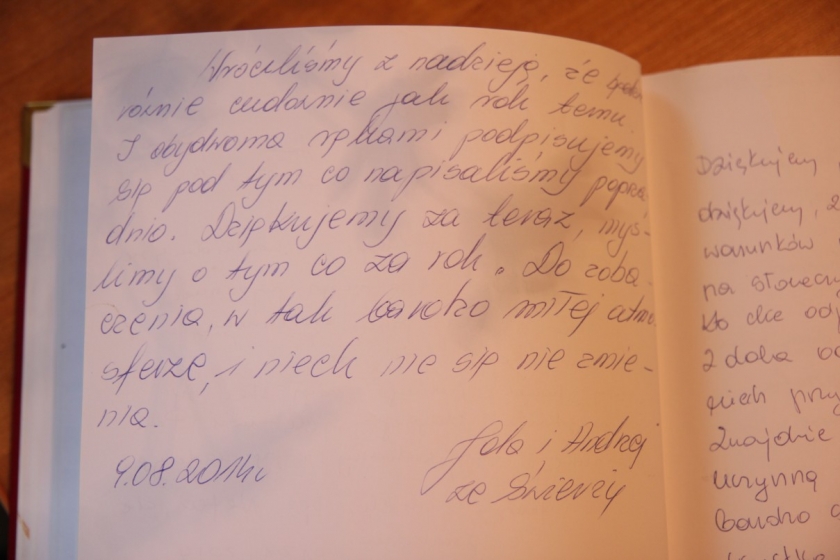 Wróciliśmy z nadzieją, że będzie
równie cudownie jak rok temu.
I obydwoma rękami podpisujemy
się pod tym co napisaliśmy poprze
dnio. Dziękujemy za teraz, myś-
limy o tym co za rok. Do zoba-
czenia, w tak bardzo miłej atmo
sferze, i niech nic się nie zmie-
nia.
9.08.2014r
Jola i Andrzej
ze
Dziękujemy
dziękujemy, z
warunków
na słonecz
kto chce od
z dala od
niech przy
znajdzie
uczynną
bardzo